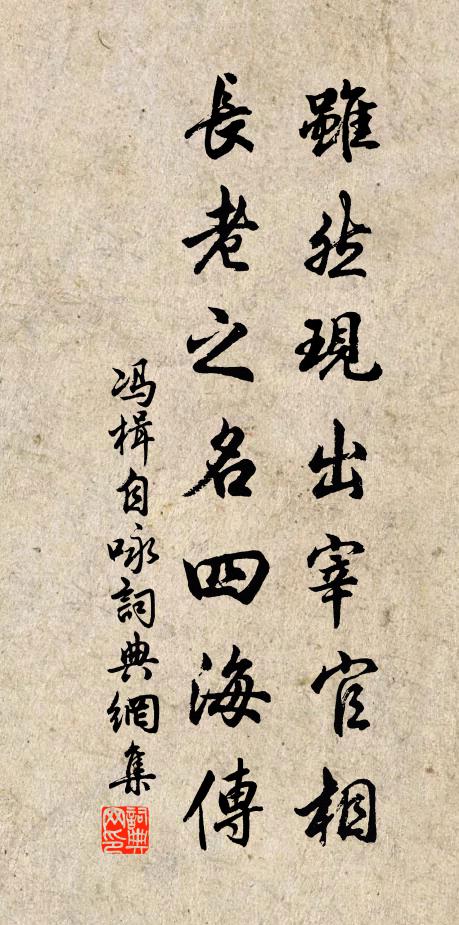 雖然現出宰官相
長老之名四海傳
冯楫自咏詞典網集
詞典网印